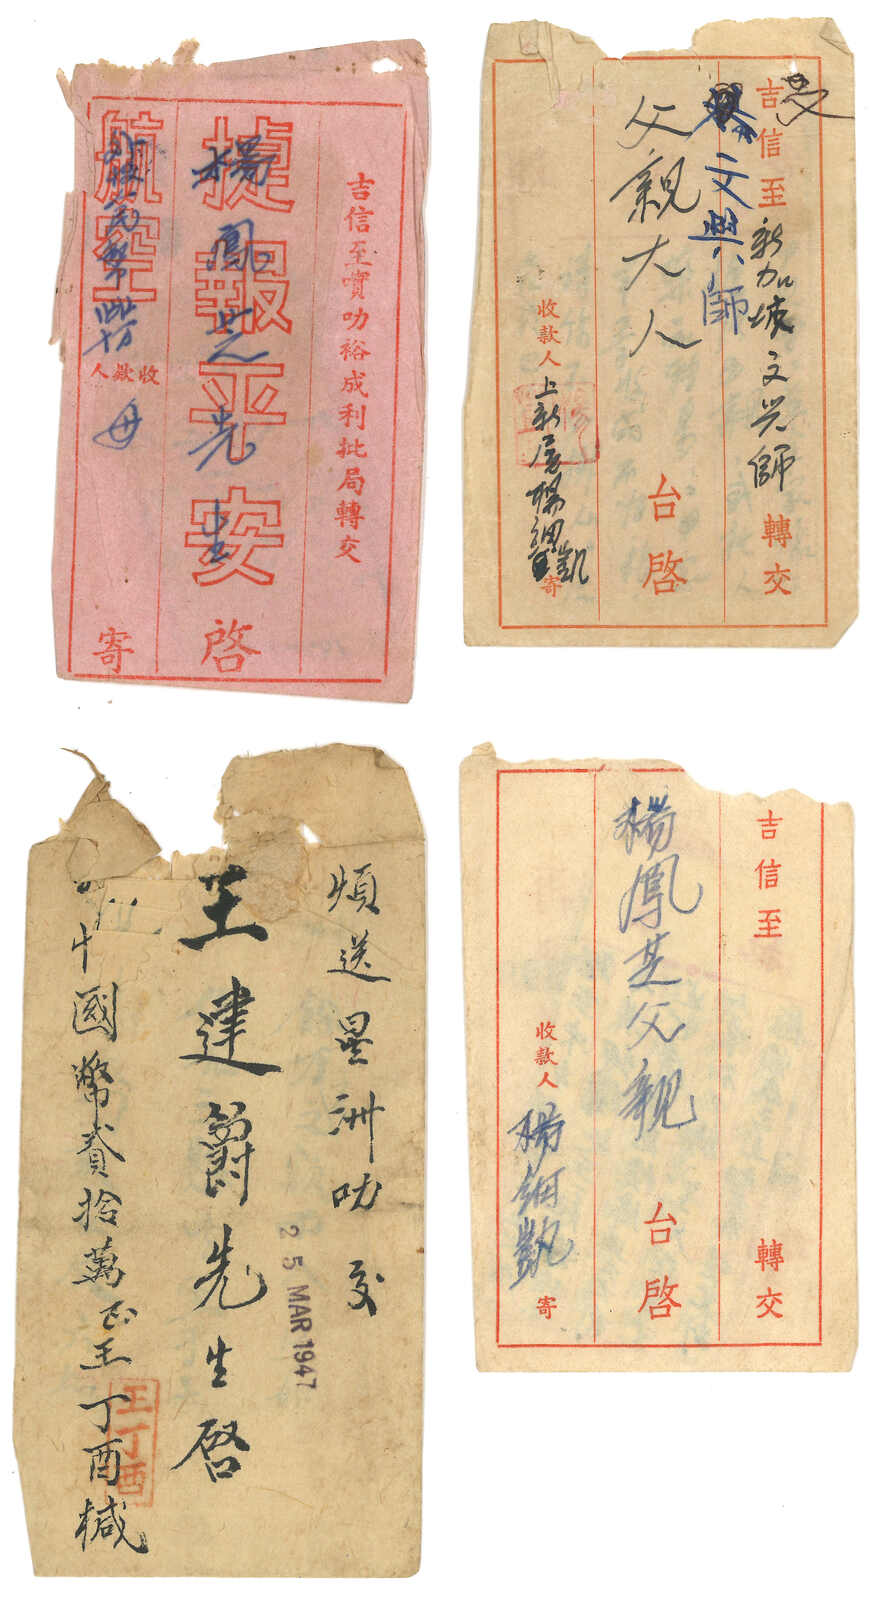 吉信至實叻裕成利批局轉交
捷報平安啓
楊鳳芝先生
航空
收款人
母
寄
吉信至新加坡文兴師轉交
文興師
父親大人
台啓
收款人上新厝楊細凱寄
煩送星洲叻交
王建爵先生啓
25 MAR 1947
十國幣貳拾萬正王丁酉椷
王丁酉
吉信至
轉交
楊鳳芝父親
台啓
收款人楊細凱寄